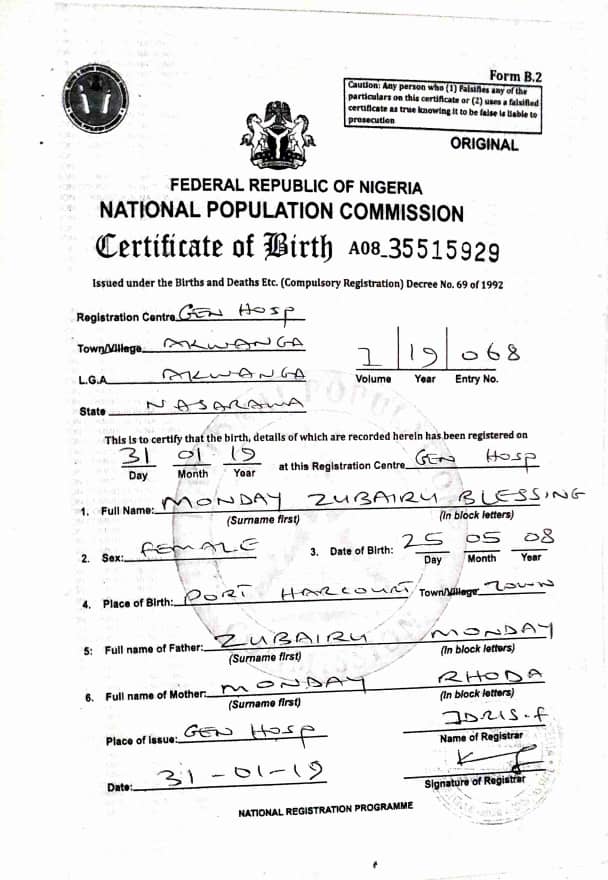 Form B.2
Caution: Any person who (1) Falsifies any of the
particulars on this certificate or (2) uses a falsified
certificate as true knowing it to be false is liable to
prosecution
ORIGINAL
FEDERAL REPUBLIC OF NIGERIA
NATIONAL POPULATION COMMISSION
Certificate of Birth A08_35515929
Issued under the Births and Deaths Etc. (Compulsory Registration) Decree No. 69 of 1992
Registration Centre GEN HOSP
Town/Village AKWANGA
L.G.A AKWANGA
State NASARAWA
1 19 068
Volume Year Entry No.
This is to certify that the birth, details of which are recorded herein has been registered on
31 01 19 at this Registration Centre GEN HOSP
Day Month Year
1. Full Name: MONDAY ZUBAIRU BLESSING
(Surname first) (In block letters)
2. Sex: FEMALE 3. Date of Birth: 25 05 08
Day Month Year
4. Place of Birth: PORT HARCOURT Town/Village TOWN
5: Full name of Father: ZUBAIRU MONDAY
(Surname first) (In block letters)
6. Full name of Mother: MONDAY RHODA
(Surname first) (In block letters)
Place of Issue: GEN HOSP IDRIS.F
Name of Registrar
Date: 31-01-19
Signature of Registrar
NATIONAL REGISTRATION PROGRAMME